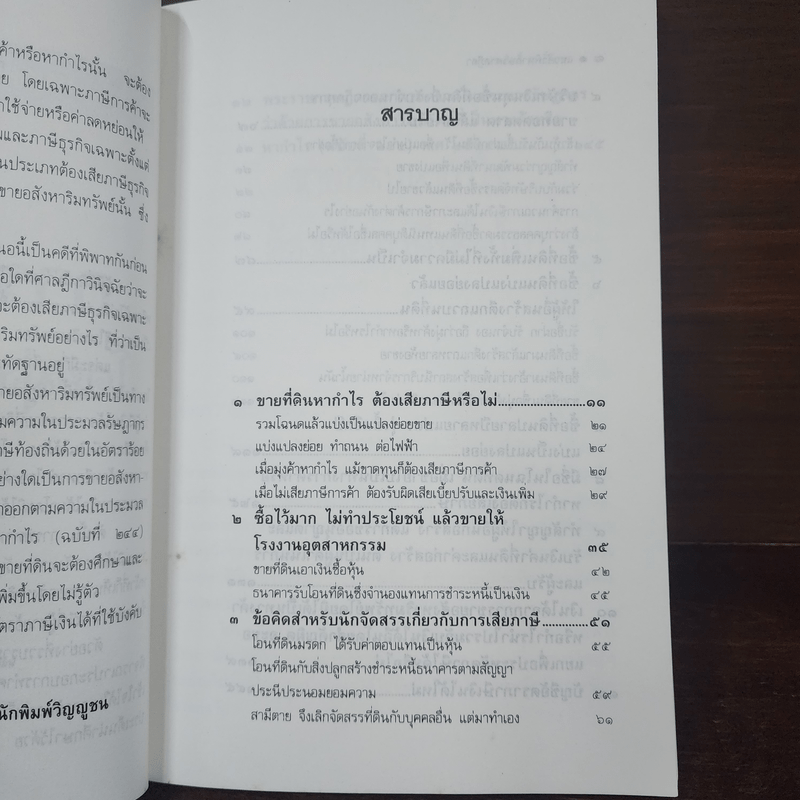 ค้าหรือหากำไรนั้น จะต้อง
ย โดยเฉพาะภาษีการค้าจะ
าใช้จ่ายหรือค่าลดหย่อนให้
มและภาษีธุรกิจเฉพาะตั้งแต่
นประเภทต้องเสียภาษีธุรกิจ
ขายอสังหาริมทรัพย์นั้น ซึ่ง
นอนี้เป็นคดีที่พิพาทกันก่อน
อใดที่ศาลฎีกาวินิจฉัยว่าจะ
จะต้องเสียภาษีธุรกิจเฉพาะ
ริมทรัพย์อย่างไร ที่ว่าเป็น
ทัดฐานอยู่
ายอสังหาริมทรัพย์เป็นทาง
มความในประมวลรัษฎากร
าษีท้องถิ่นด้วยในอัตราร้อย
อย่างใดเป็นการขายอสังหา-
าออกตามความในประมวล
ากำไร (ฉบับที่ ๒๔๔)
ขายที่ดินจะต้องศึกษาและ
พิ่มขึ้นโดยไม่รู้ตัว
ตราภาษีเงินได้ที่ใช้บังคับ
นักพิมพ์วิญญูชน
สารบาญ
๑ ขายที่ดินหากำไร ต้องเสียภาษีหรือไม่..........................๑๑
รวมโฉนดแล้วแบ่งเป็นแปลงย่อยขาย ๒๑
แบ่งแปลงย่อย ทำถนน ต่อไฟฟ้า ๒๔
เมื่อมุ่งค้าหากำไร แม้ขาดทุนก็ต้องเสียภาษีการค้า ๒๗
เมื่อไม่เสียภาษีการค้า ต้องรับผิดเสียเบี้ยปรับและเงินเพิ่ม ๒๙
๒ ซื้อไว้มาก ไม่ทำประโยชน์ แล้วขายให้
โรงงานอุตสาหกรรม ๓๕
ขายที่ดินเอาเงินซื้อหุ้น ๔๒
ธนาคารรับโอนที่ดินซึ่งจำนองแทนการชำระหนี้เป็นเงิน ๔๕
๓ ข้อคิดสำหรับนักจัดสรรเกี่ยวกับการเสียภาษี.............๕๑
โอนที่ดินมรดก ได้รับค่าตอบแทนเป็นหุ้น ๕๕
โอนที่ดินกับสิ่งปลูกสร้างชำระหนี้ธนาคารตามสัญญา
ประนีประนอมยอมความ ๕๙
สามีตาย จึงเลิกจัดสรรที่ดินกับบุคคลอื่น แต่มาทำเอง ๖๑